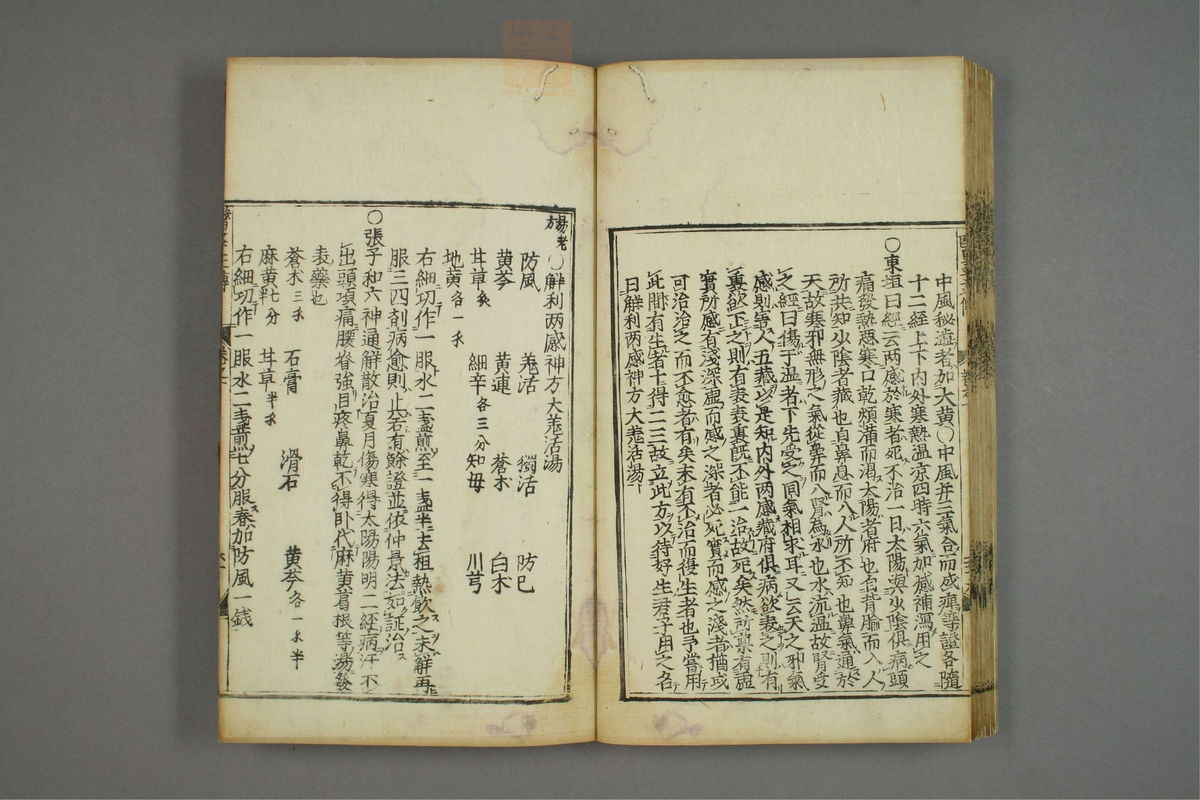 中風秘澁者加大黄○中風并三氣合而成痺等證各隨
十二經上下内外寒熱温凉四時六氣加減補瀉用之
○東垣曰經云两感於寒者死不治一日太陽與少陰俱病頭
痛發熱惡寒口乾煩滿而渴太陽者府也自背腧而入人
所共知少陰者藏也自鼻息而入人所不知也鼻氣通於
天故寒邪無形之氣從鼻而入腎為水也水流温故腎受
之經曰傷于温者下先受之同氣相求耳又云天之邪氣
感則害人五藏以是知内外两感藏府俱病欲表之則有
裏欲下之則有表表裏既不能一治故死矣然所禀有虛
實所感有淺深虛而感之深者必死實而感之淺者猶或
可治治之而不愈者有矣未有不治而復生者也予嘗用
此間有生者十得二三故立此方以待好生君子用之名
曰解利两感神方大羗活湯
易老方○解利两感神方大羗活湯
防風 羗活 獨活 防巳
黄芩 黄連 蒼术 白术
甘草炙 細辛各三分 知母 川芎
地黄各一戔
右細切作一服水二盞煎至一盞半去柤熱飲之未解再
服三四劑病愈則止若有餘證並依仲景法如証治
○張子和六神通解散治夏月傷寒得太陽陽明二經病汗不
出頭項痛腰脊強目疼鼻乾不得卧代麻黄葛根等湯發
表藥也
蒼术三戔 石膏 滑石 黄芩各一戔半
麻黄七分 甘草半戔
右細切作一服水二盞煎七分服春加防風一錢